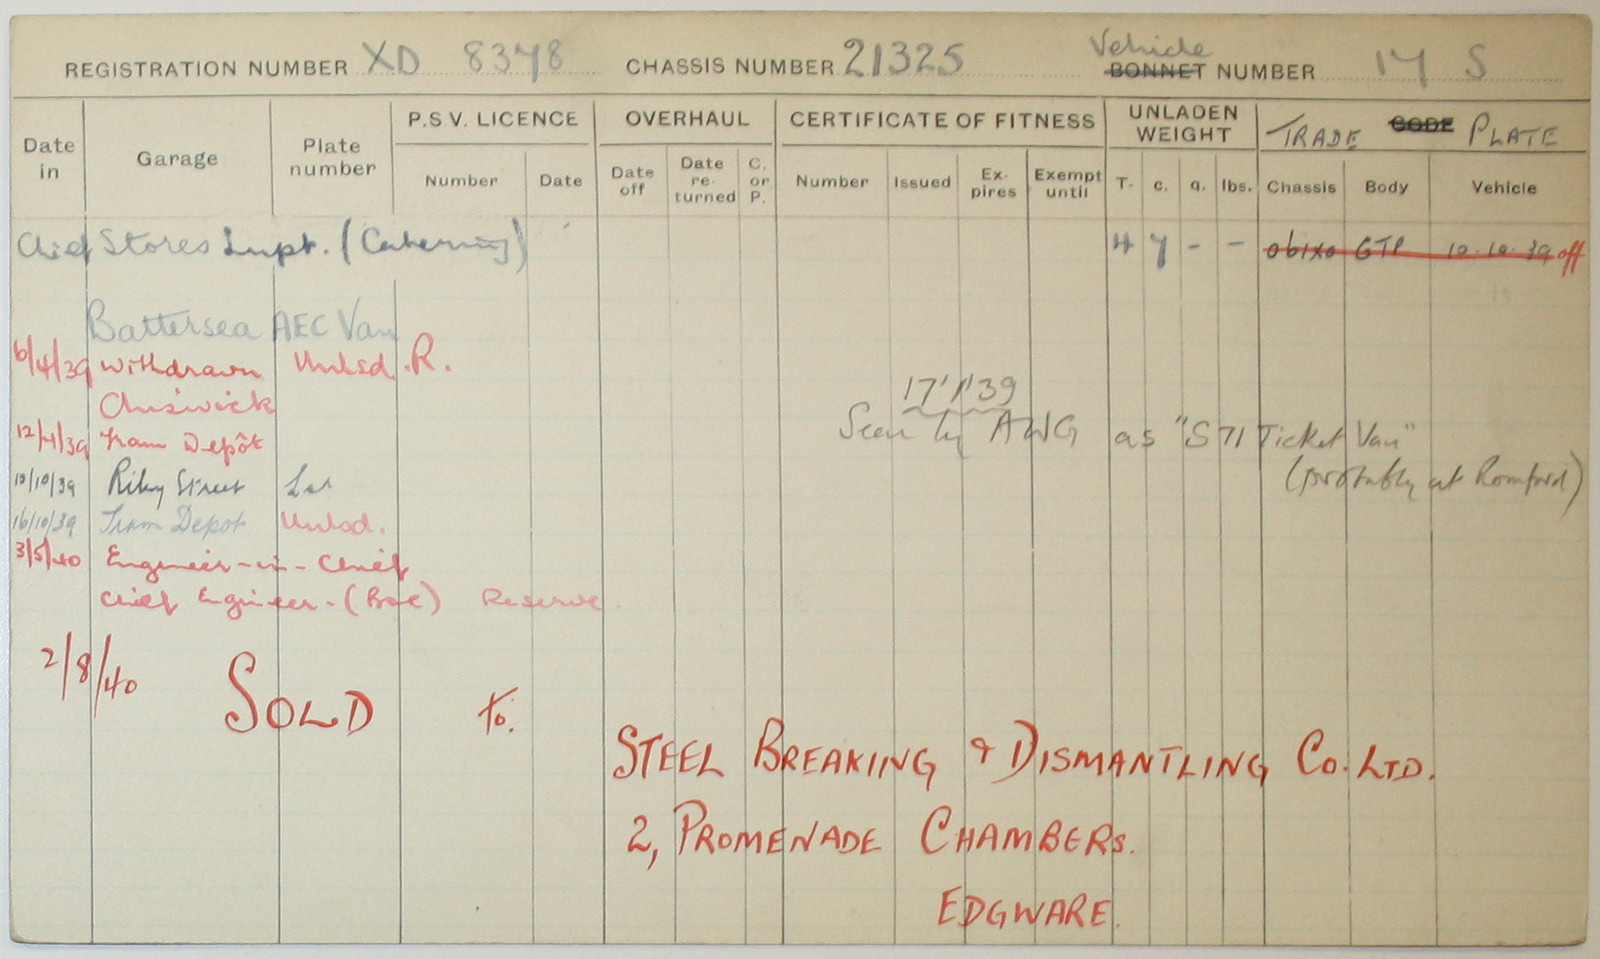 REGISTRATION NUMBER XD 8378 CHASSIS NUMBER 21325 Vehicle BONNET NUMBER 17 S
Date in Garage Plate number P.S.V. LICENCE OVERHAUL CERTIFICATE OF FITNESS UNLADEN WEIGHT TRADE CODE PLATE
Number Date Date off Date re-turned C. or P. Number Issued Ex-pires Exempt until T. c. q. lbs. Chassis Body Vehicle
Chief Stores Supt. (Catering) 4 7 - - 061XO GTP 10.10.39 off
Battersea AEC Van
6/4/39 Withdrawn Unlsd. R.
Chiswick
17/1/39
12/4/39 Tram Depôt
Seen by AWG as "S 71 Ticket Van"
(probably at Romford)
10/10/39 Riley Street Lsd
16/10/39 Tram Depot Unlsd.
3/5/40 Engineer-in-Chief
Chief Engineer-(Bce) Reserve.
2/8/40 SOLD to.
STEEL BREAKING & DISMANTLING CO. LTD.
2, PROMENADE CHAMBERS.
EDGWARE.